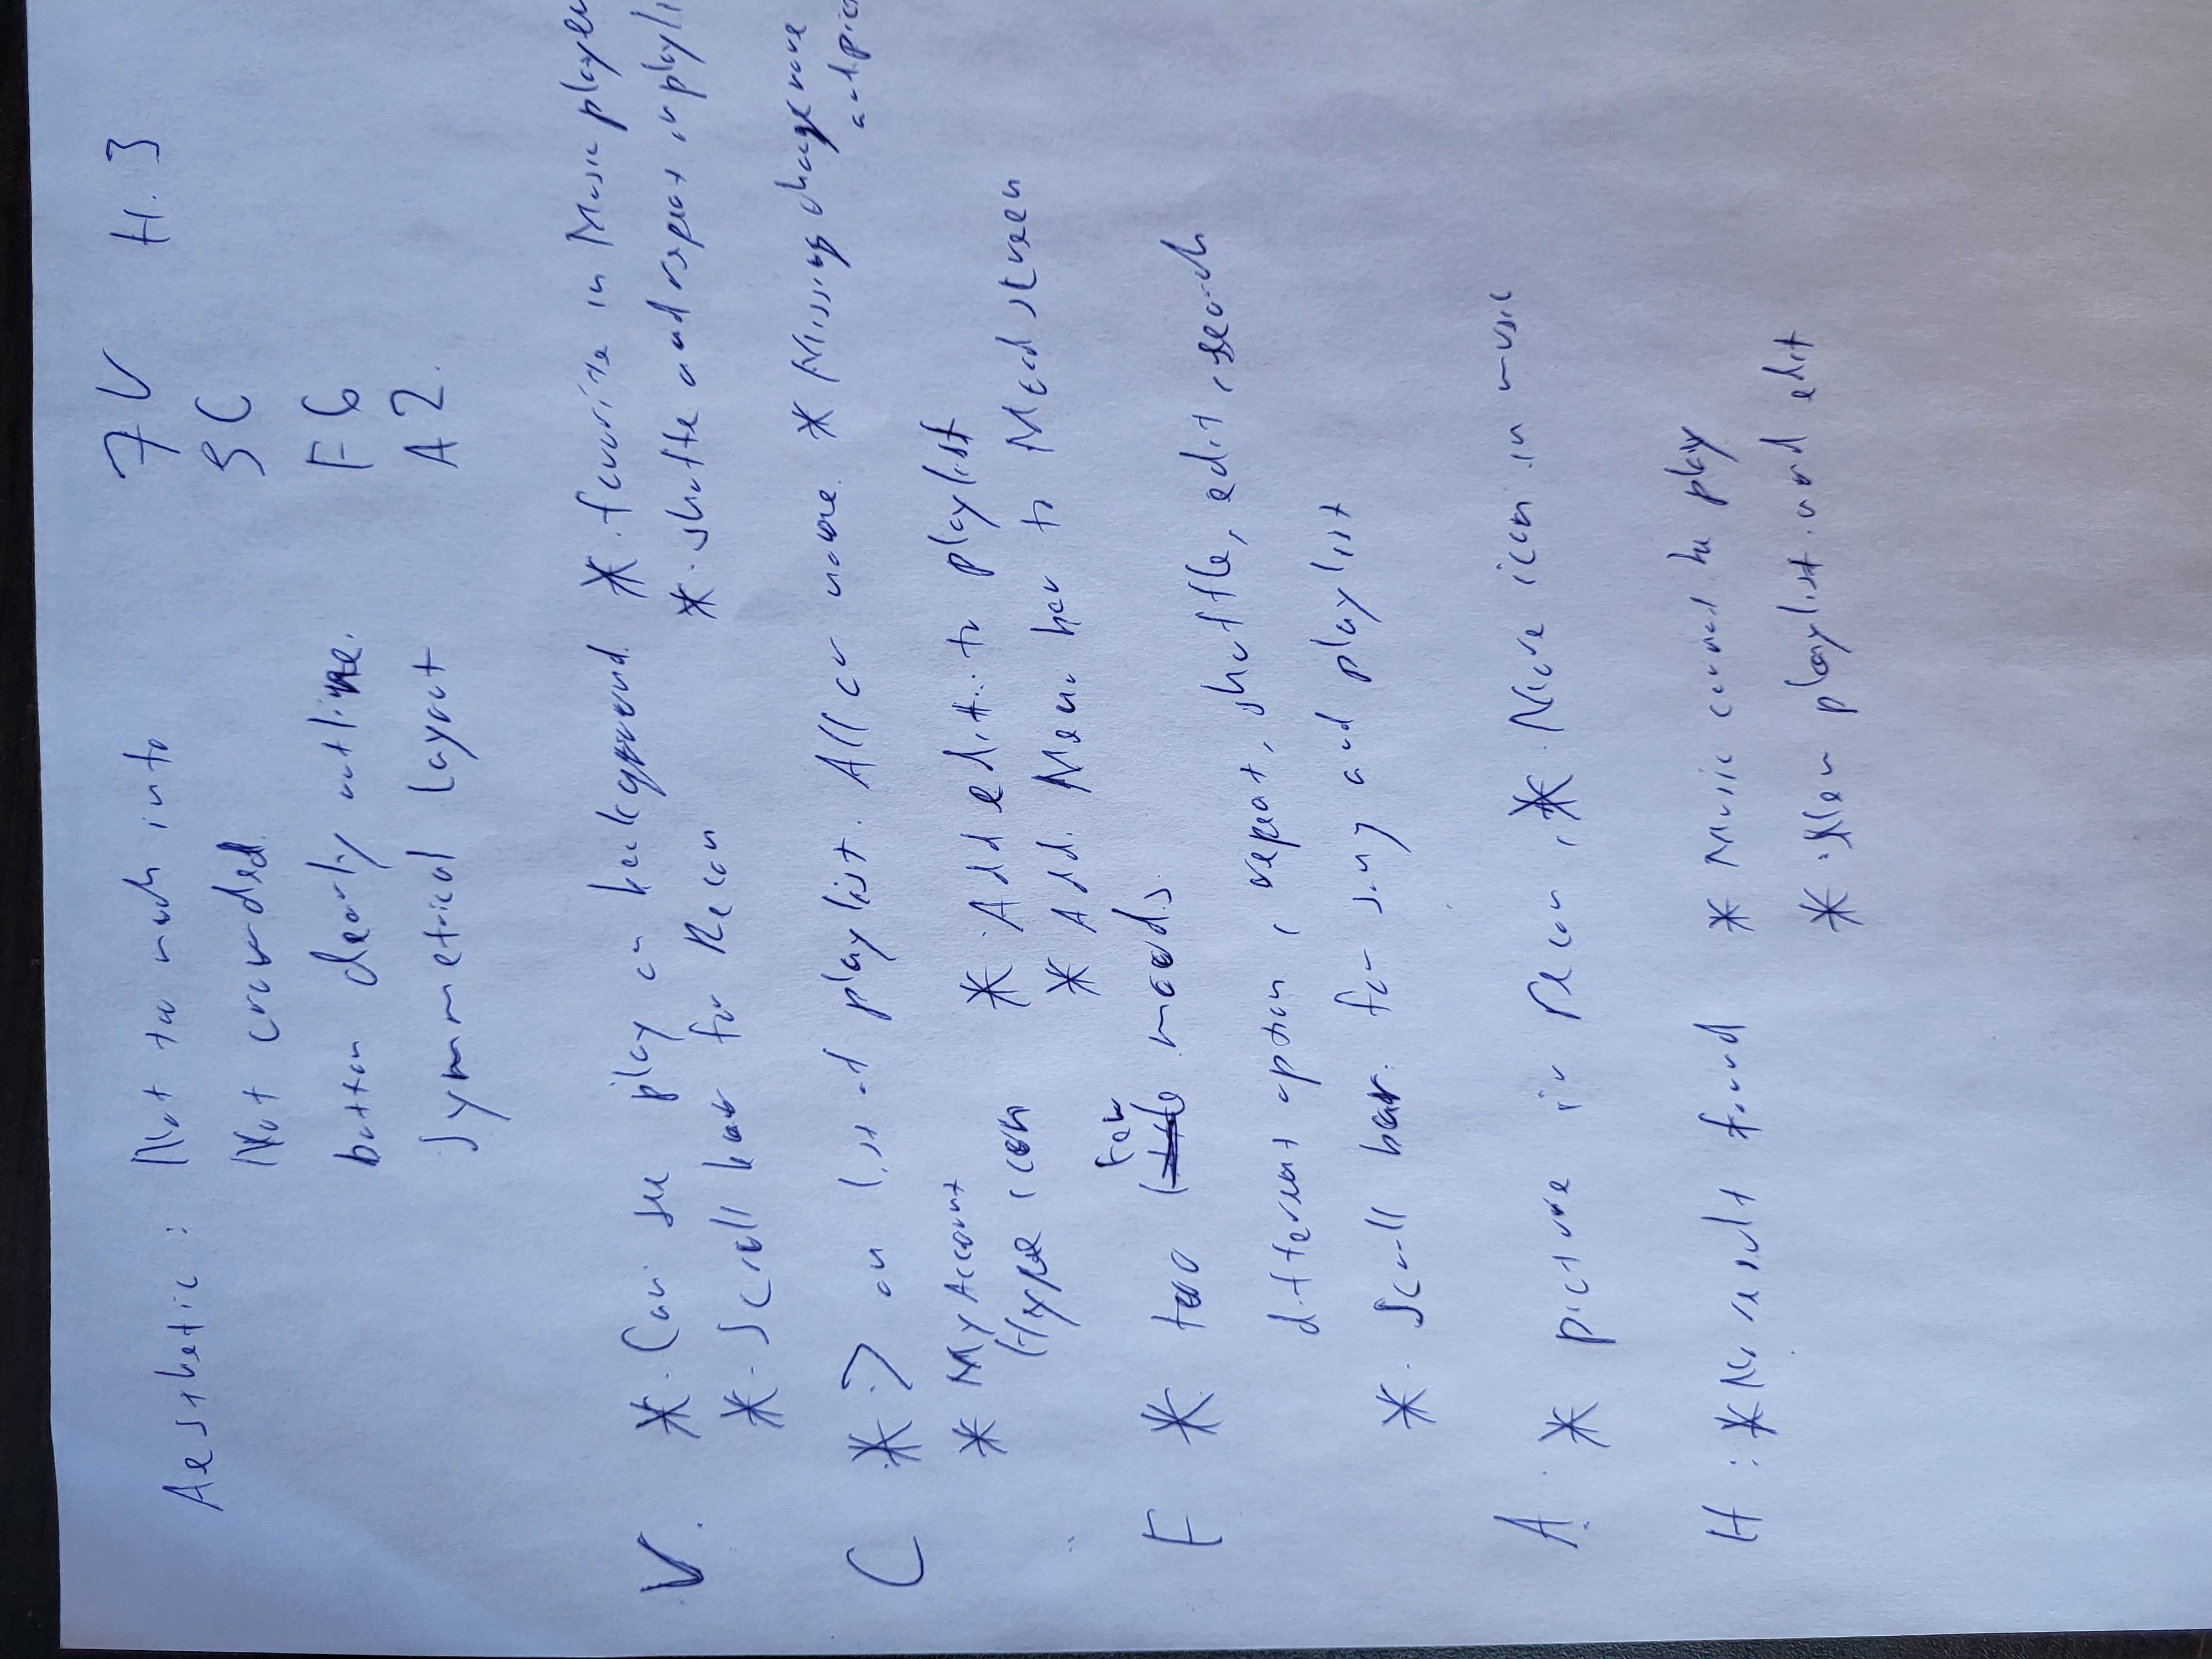 Aesthetic : Not too much info 7 V H. 3
Not crowded. 5 C
button clearly outline. F 6
Symmetrical Layout A 2.
V. * Can see play on background. * favorite in Music player
* Scroll bar for Recom * shuffle and repeat in playli
C * > on list of playlist. All or none. * Missing change name
and pic
* My Account * Add edit to playlist
Hype icon
* Add Menu bar to Mood screen
F * too few moods.
different option, repeat, shuffle, edit, search
* Scroll bar for song and playlist
A * picture in recom, * More icon in music
H : * No result found * Music cannot be play
* New playlist and edit